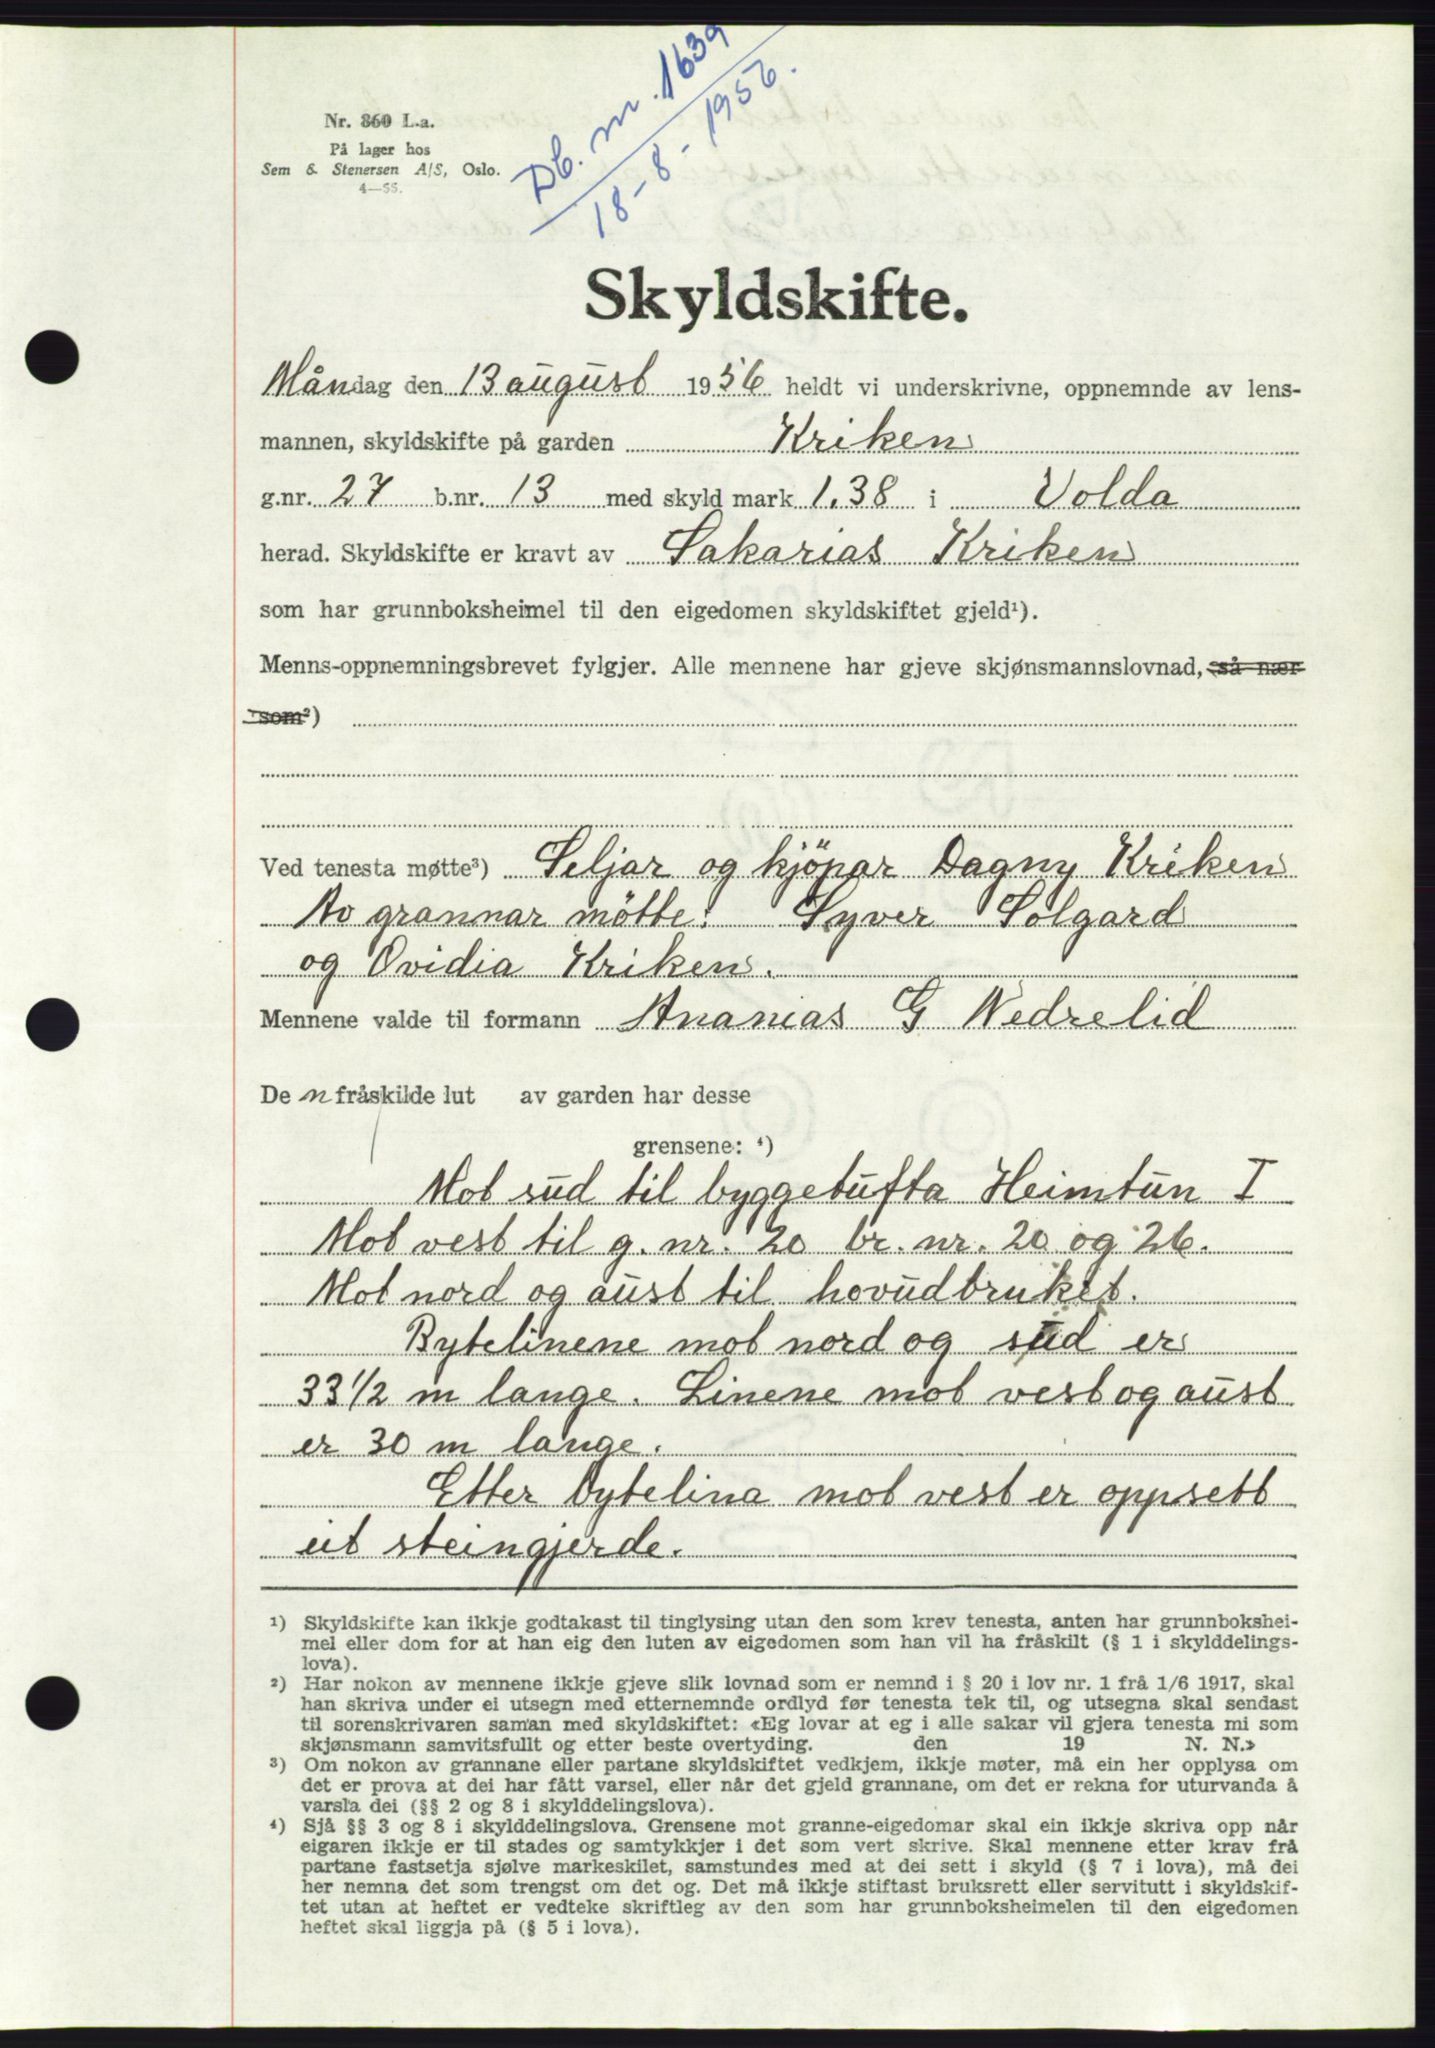 Db. nr. 1639
18-8-1956.
Nr. 860 L.a.
På lager hos
Sem & Stenersen A/S, Oslo.
4—55.
Skyldskifte.
Måndag den 13 august 1956 heldt vi underskrivne, oppnemnde av lens-
mannen, skyldskifte på garden Kriken
g.nr. 27 b.nr. 13 med skyld mark 1.38 i Volda
herad. Skyldskifte er kravt av Sakarias Kriken
som har grunnboksheimel til den eigedomen skyldskiftet gjeld¹).
Menns-oppnemningsbrevet fylgjer. Alle mennene har gjeve skjønsmannslovnad, så nær
som²)
Ved tenesta møtte³) Seljar og kjöpar Dagny Kriken
Av grannar mötte: Syver Solgard
og Ovidia Kriken.
Mennene valde til formann Ananias G Nedrelid
De n fråskilde lut av garden har desse
grensene: ⁴)
Mot sud til byggetufta Heimtun I
Mot vest til g. nr. 20 br. nr. 20 og 26.
Mot nord og aust til hovudbruket.
Bytelinene mot nord og sud er
33 1/2 m lange. Linene mot vest og aust
er 30 m lange.
Etter bytelina mot vest er oppsett
eit steingjerde.
¹) Skyldskifte kan ikkje godtakast til tinglysing utan den som krev tenesta, anten har grunnbokshei-
mel eller dom for at han eig den luten av eigedomen som han vil ha fråskilt (§ 1 i skylddelings-
lova).
²) Har nokon av mennene ikkje gjeve slik lovnad som er nemnd i § 20 i lov nr. 1 frå 1/6 1917, skal
han skriva under ei utsegn med etternemnde ordlyd før tenesta tek til, og utsegna skal sendast
til sorenskrivaren saman med skyldskiftet: «Eg lovar at eg i alle sakar vil gjera tenesta mi som
skjønsmann samvitsfullt og etter beste overtyding. den 19 N. N.»
³) Om nokon av grannane eller partane skyldskiftet vedkjem, ikkje møter, må ein her opplysa om
det er prova at dei har fått varsel, eller når det gjeld grannane, om det er rekna for uturvanda å
varsla dei (§§ 2 og 8 i skylddelingslova).
⁴) Sjå §§ 3 og 8 i skylddelingslova. Grensene mot granne-eigedomar skal ein ikkje skriva opp når
eigaren ikkje er til stades og samtykkjer i det som vert skrive. Skal mennene etter krav frå
partane fastsetja sjølve markeskilet, samstundes med at dei sett i skyld (§ 7 i lova), må dei
her nemna det som trengst om det og. Det må ikkje stiftast bruksrett eller servitutt i skyldskif-
tet utan at heftet er vedteke skriftleg av den som har grunnboksheimelen til den eigedomen
heftet skal liggja på (§ 5 i lova).